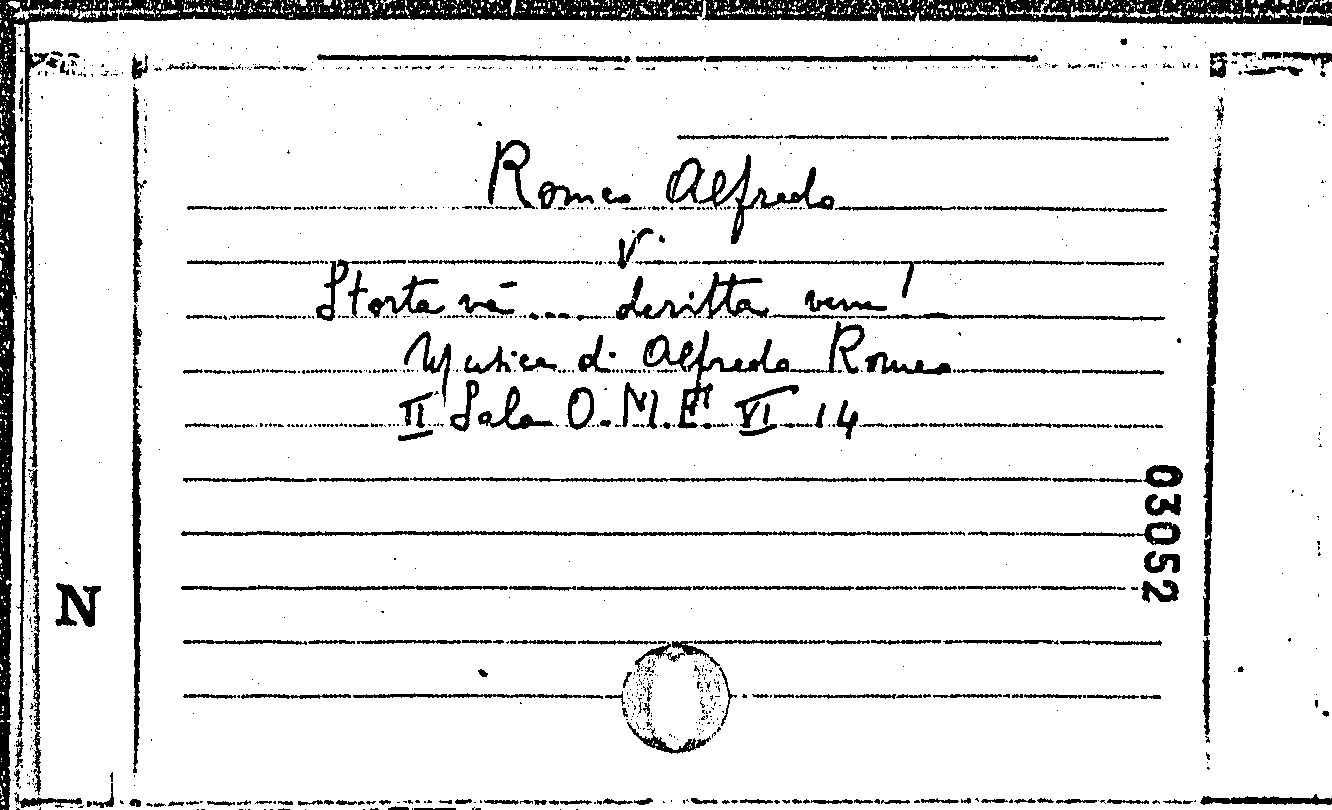 Romeo Alfredo
V.
Storta va.... deritta vene!
Musica di Alfredo Romeo
II Sala O.M.E. VI 14
03052
N